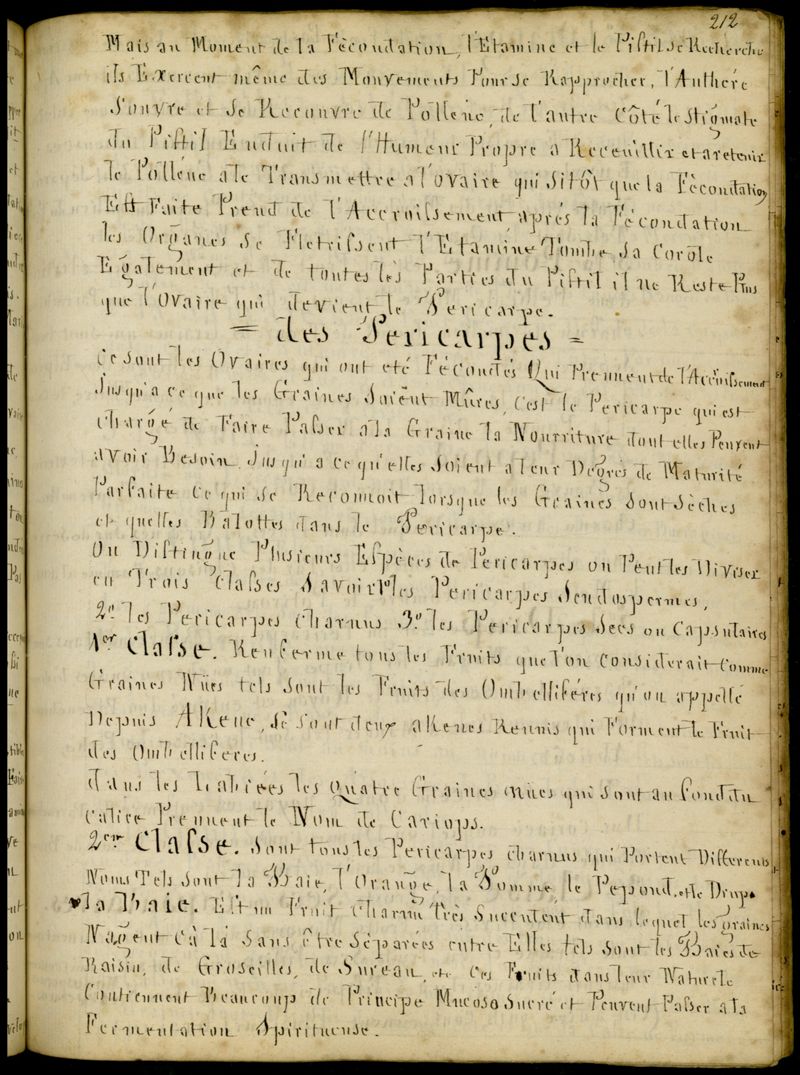 212
Mais au Moment de la Fécondation, l'Etamine et le Pistil se Recherche
ils Exercent même des Mouvements Pour se Rapprocher, l'Anthere
S'ouvre et se Recouvre de Pollene, de l'autre Côté le Stigmate
du Pistil Enduit de l'Humeur Propre a Receuillir et a retenir
le Pollene a le Transmettre a l'ovaire qui sitôt que la Fécondation
Est Faite Prend de l'Accroissement, après la Fécondation
les Organes se Fletrissent l'Etamine Tombe, sa Corole
Egalement et de toutes les Parties du Pistil il ne Reste Plus
que l'Ovaire qui devient le Pericarpe.
= des Pericarpes =
Ce sont les Ovaires qui ont eté Fécondés Qui Prennent de l'Accroissement
Jusqu'a ce que les Graines Soient Mûres, C'est le Pericarpe qui est
Chargé de Faire Passer a la Graine la Nourriture dont elles Peuvent
avoir Besoin, Jusqu'a ce qu'elles Soient a leur Dégrés de Maturité
Parfaite Ce qui se Reconnoit lorsque les Graines Sont Sèches
et quelles Balottes dans le Pericarpe.
On Distingue Plusieurs Espèces de Pericarpes on Peut les Diviser
en Trois Classes Savoir 1º les Pericarpes Seudospermes,
2º les Pericarpes Charnus 3º les Pericarpes Secs ou Capsulaires
1er Classe. Renferme tous les Fruits que l'on Considerait Comme
Graines Nües tels sont les Fruits des Ombelliféres qu'on appellé
Depuis AKene, Se sont deux akenes Reunis qui Forment le Fruit
des Ombelliferes.
dans les Labiées les Quatre Graines nües qui sont au fond du
Calice Prennent le Nom de Cariops.
2em Classe. Sont tous les Pericarpes Charnus qui Portent Differents
Noms Tels sont la Baie, l'Orange, la Pomme, le Pepond, et le Drup.
la Baie. Est un Fruit Charnu Très Succulent dans lequel les Graines
Nagent Cà la Sans être Séparées entre Elles tels sont les Baies de
Raisin, de Groseilles, de Sureau, etc Ces Fruits dans leur Naturele
Contiennent Beaucoup de Principe Mucoso Sucré et Peuvent Passer a la
Fermentation Spiritueuse.